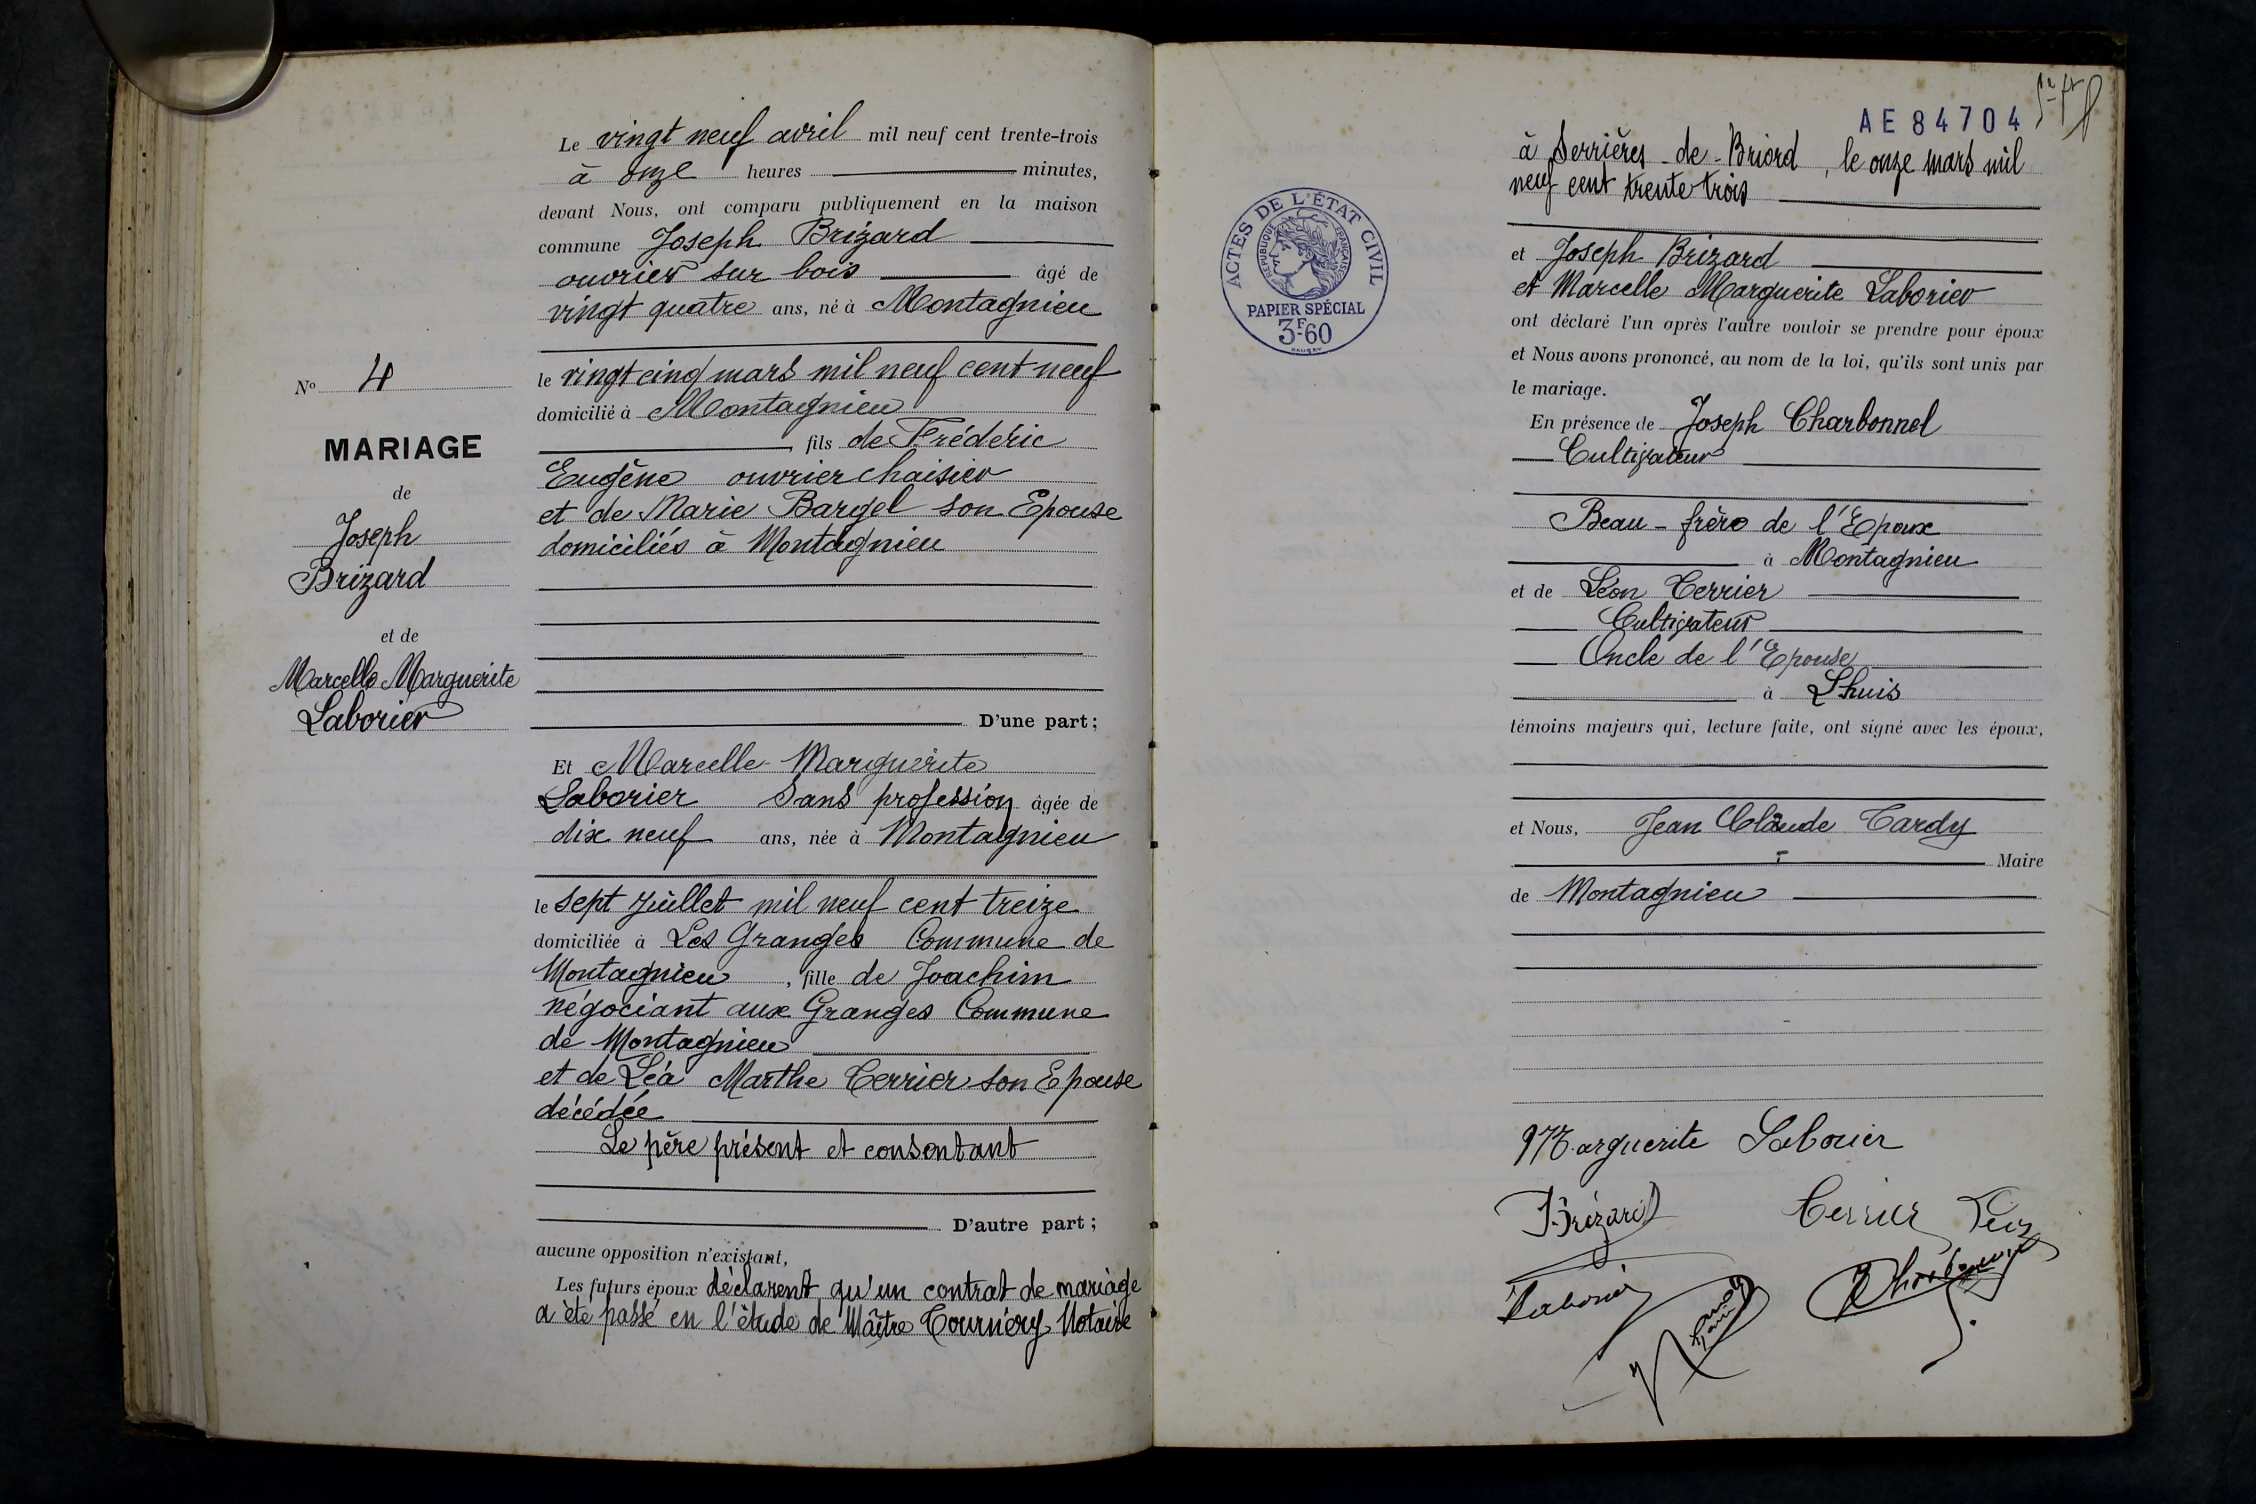 Le vingt neuf avril mil neuf cent trente-trois
à onze heures minutes,
devant Nous, ont comparu publiquement en la maison
commune Joseph Brizard
ouvrier sur bois âgé de
vingt quatre ans, né à Montagnieu
le vingt cinq mars mil neuf cent neuf
domicilié à Montagnieu
fils de Frédéric
Eugène ouvrier chaisier
et de Marie Bargel son Epouse
domiciliés à Montagnieu
D'une part;
No 4
MARIAGE
de
Joseph
Brizard
et de
Marcelle Marguerite
Laborier
Et Marcelle Marguerite
Laborier Sans profession âgée de
dix neuf ans, née à Montagnieu
le sept juillet mil neuf cent treize
domiciliée à Les Granges Commune de
Montagnieu, fille de Joachim
négociant aux Granges Commune
de Montagnieu
et de Léa Marthe Cerrier son Epouse
décédée
Le père présent et consentant
D'autre part;
aucune opposition n'existant,
Les futurs époux déclarent qu'un contrat de mariage
a été passé en l'étude de Maître Tournery Notaire
AE 84704
à Serrières-de-Briord, le onze mars mil
neuf cent trente trois
ACTES DE L'ÉTAT CIVIL
RÉPUBLIQUE FRANÇAISE
PAPIER SPÉCIAL
3F60
et Joseph Brizard
et Marcelle Marguerite Laborier
ont déclaré l'un après l'autre vouloir se prendre pour époux
et Nous avons prononcé, au nom de la loi, qu'ils sont unis par
le mariage.
En présence de Joseph Charbonnel
Cultivateur
Beau-frère de l'Epoux
à Montagnieu
et de Léon Cerrier
Cultivateur
Oncle de l'Epouse
à Lhuis
témoins majeurs qui, lecture faite, ont signé avec les époux,
et Nous, Jean Claude Tardy
Maire
de Montagnieu
Marguerite Laborier
Brizard Cerrier Léon
Laborier Charbonnel